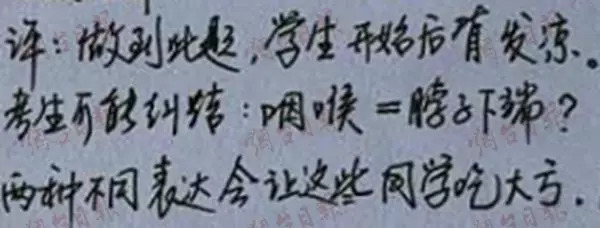 评：做到此题，学生开始后有发凉。
考生可能纠结：咽喉=脖子下端？
两种不同表达会让这些同学吃大亏.